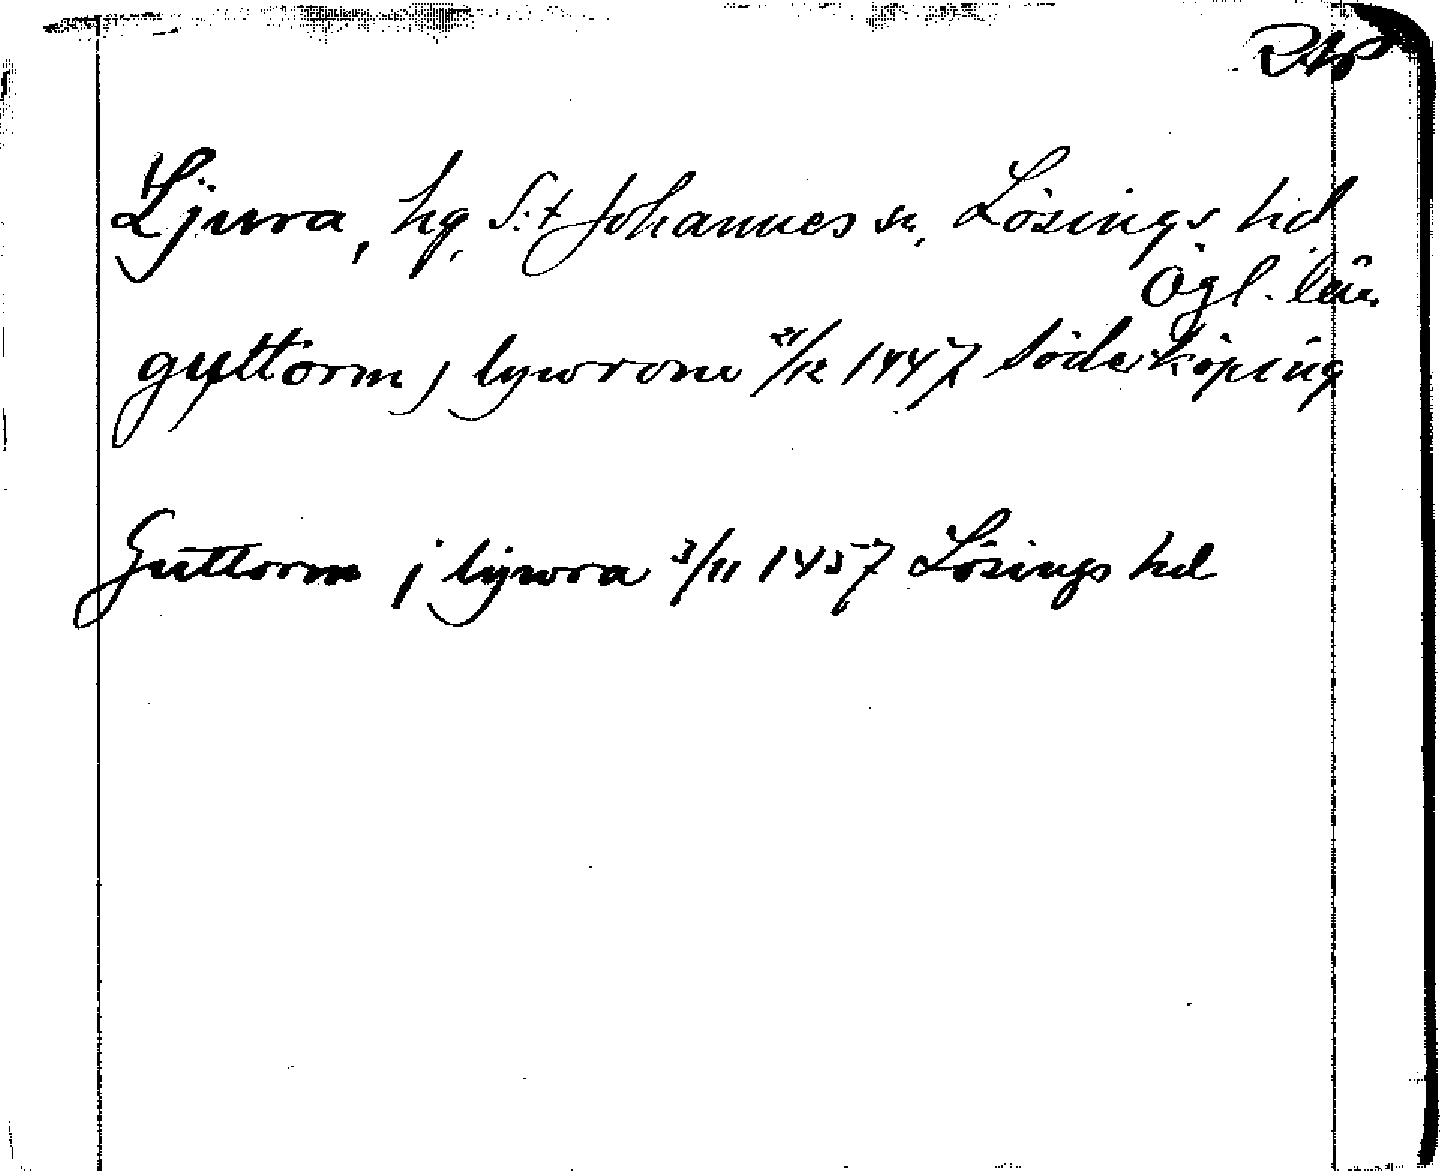 Ljura, hg, S:t Johannes sn, Lösings hd
Ögl. län.
guttorm j lywrom 21/12 1447 Söderköping
Guttorm j lywra 3/11 1457 Lösings hd